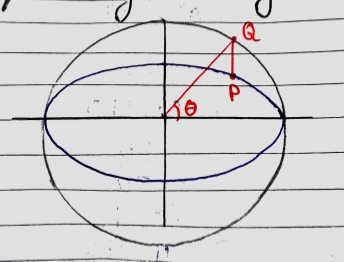 Q
P
θ